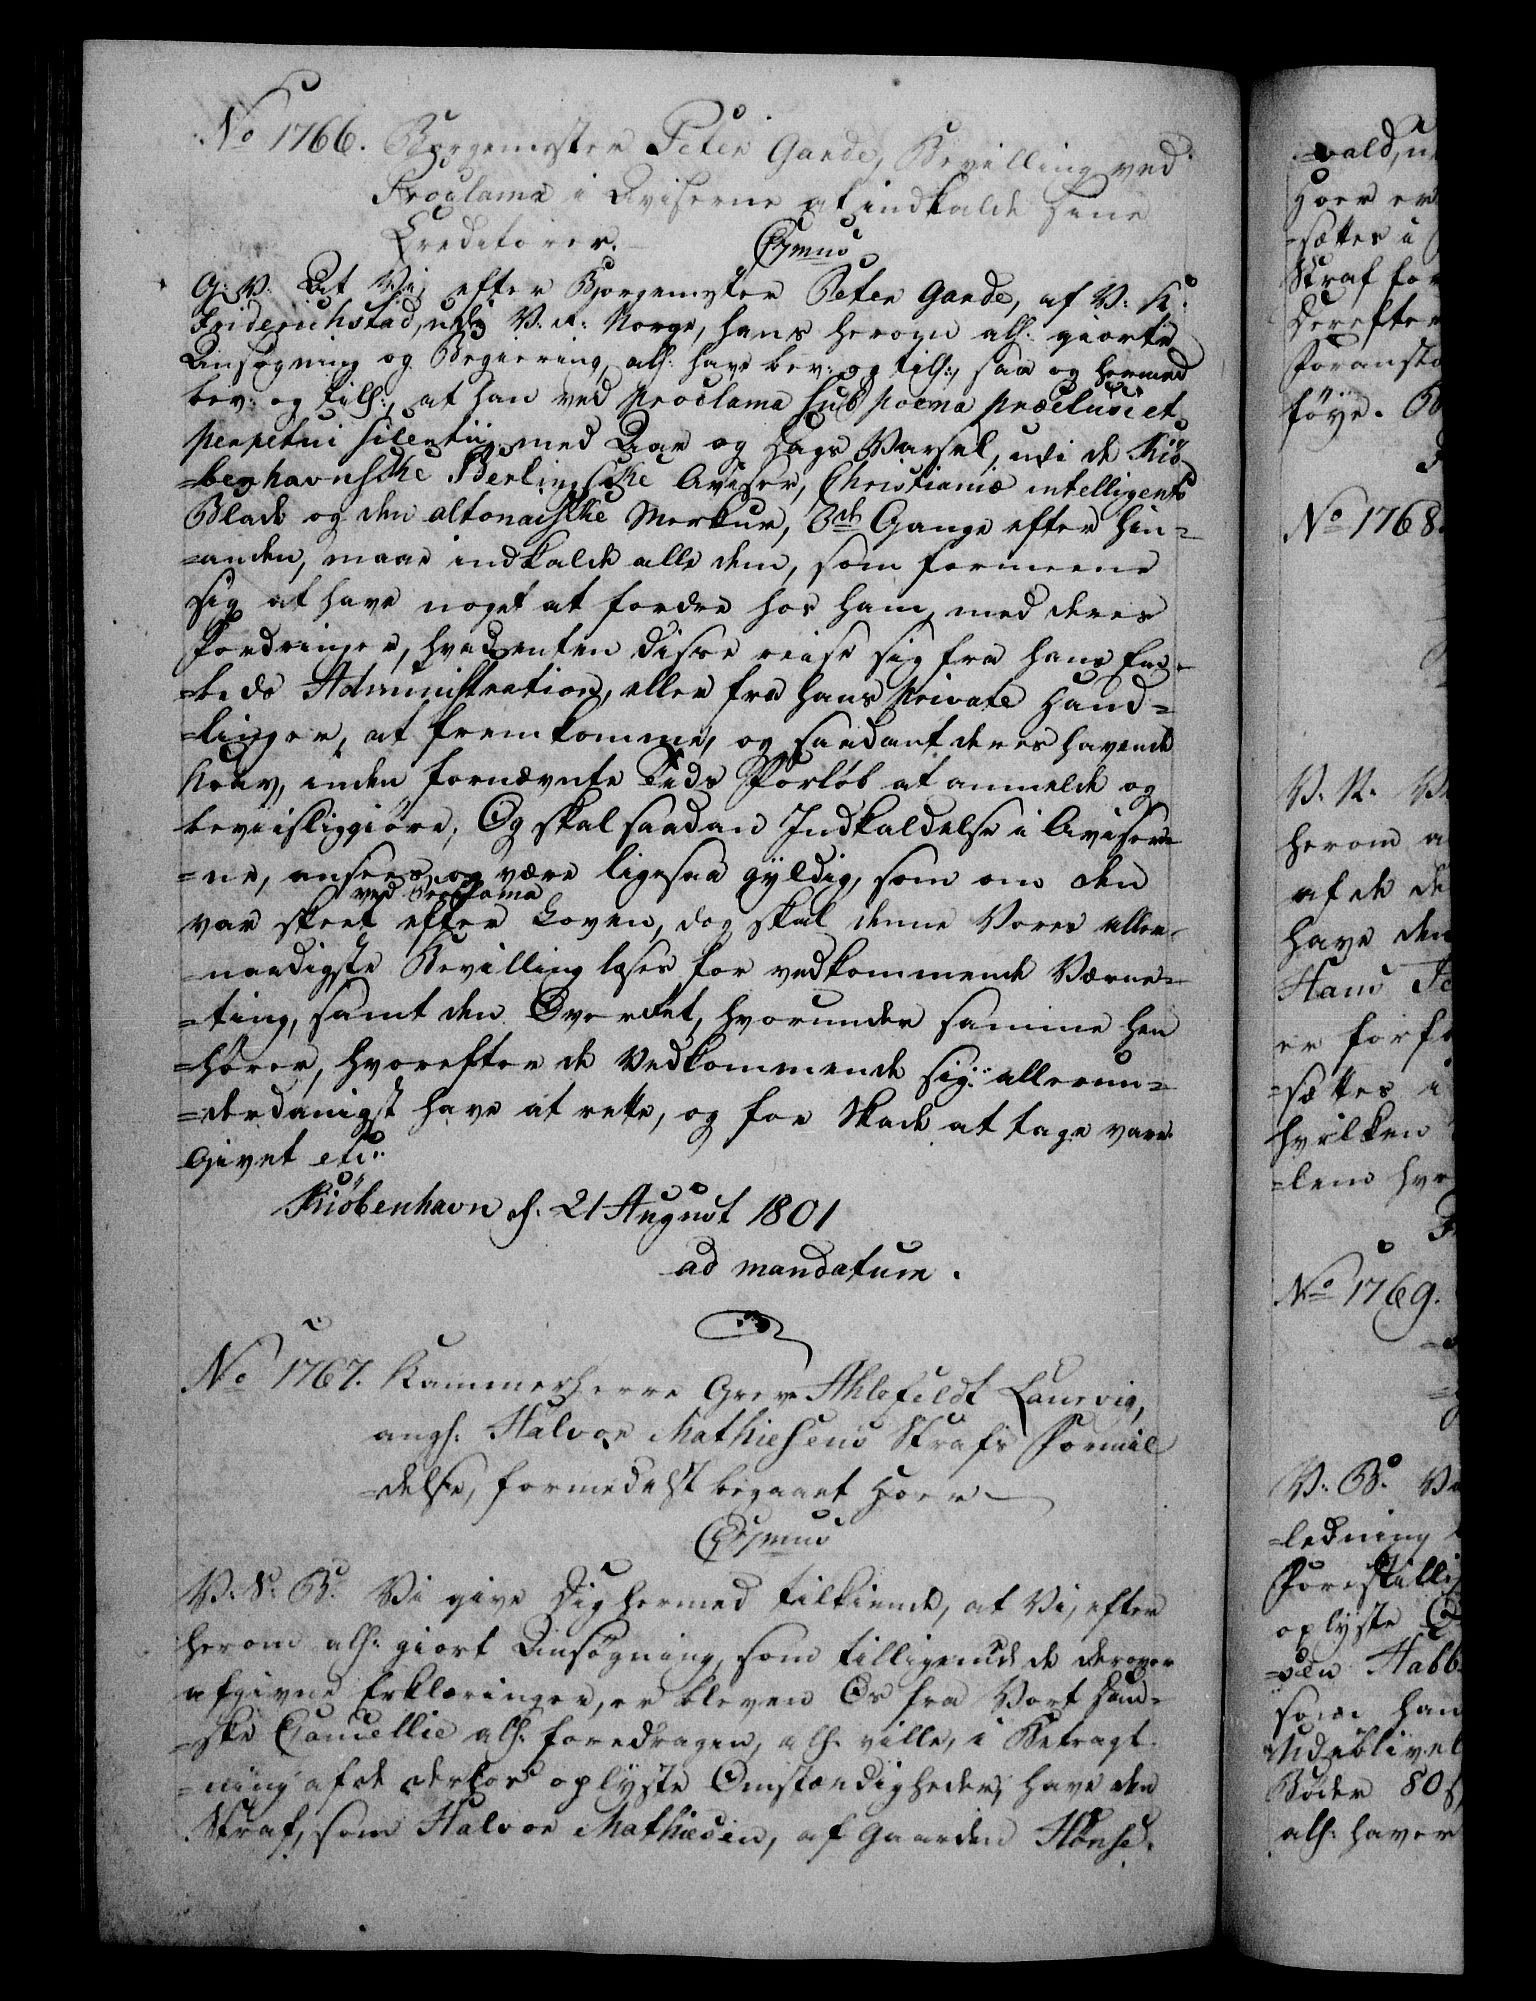 No 1766. Borgemester Peter Gande, Bevilling ved
Proclama i Aviserne at indkalde sine
Creditorer.
G: V. At Vi, efter Borgemester Peter Gande, af V: K:
Friderichstad, udi V: R: Norge, hans herom alh: giorte
Ansøgning og Begiering, alh: have bev: og tilh:, saa og hermed
bev: og tilh:, at han ved Proclama sub poena præclusi et
perpetui silentii, med Aar og Dags Varsel, udi de Kiö-
=benhavnske Berlingske Aviser, Christianiæ intelligents
Blade og den altonaiske Merkur, 3de Gange efter hin-
=anden, maae indkalde alle dem, som formeene
sig at have noget at fordre hos ham, med deres
Fordringer, hvad enten disse reise sig fra hans Em-
=beds Administration, eller fra hans private Hand=
=linger, at fremkomme, og saadant deres havende
Krav, inden fornævnte Tids Forløb at anmelde og
beviisliggiöre; Og skal saadan Indkaldelse i Aviser-
=ne, ansees og være ligesaa gyldig, som om den
ved Proclama
var skeet efter Loven, dog skal denne Vores aller-
naadigste Bevilling læses for vedkommende Værne-
=ting, samt den Overret, hvorunder samme hen
=hører, hvorefter de Vedkommende sig allerun=
=derdanigst have at rette, og for Skade at tage vare.
Givet etc:
Kiöbenhavn d. 21 August 1801
ad mandatum.
No 1767. Kammerherre Greve Ahlefeldt Laurvig,
angh: Halvor Mathiesens Strafs Formil
=delse, formedelst begaaet Hoer
V: S: B: Vi give Dig hermed tilkiende, at Vi, efter
herom alh: giort Ansøgning, som tilligemed de derover
afgivne Erklæringer, er bleven Os fra Vort Dan-
=ske Cancellie alh: foredragen, alh: ville, i Betragt-
=ning af de derhos oplyste Omstændigheder, have den
Straf, som Halvor Mathiesen, af Gaarden Hönse-
=vald, u
Hoer er
=sættes i
Straf for
derefter
foransta
föye.
No 1768.
V. K.
herom a
af de de
have den
Hans
er forf
=sættes i
hvilken
=lem hvo
No 1769.
V: B: Vi
=ledning
Forestilli
oplyste
=den Habb
som han
Udeblivel
Böder 80
alh: haver